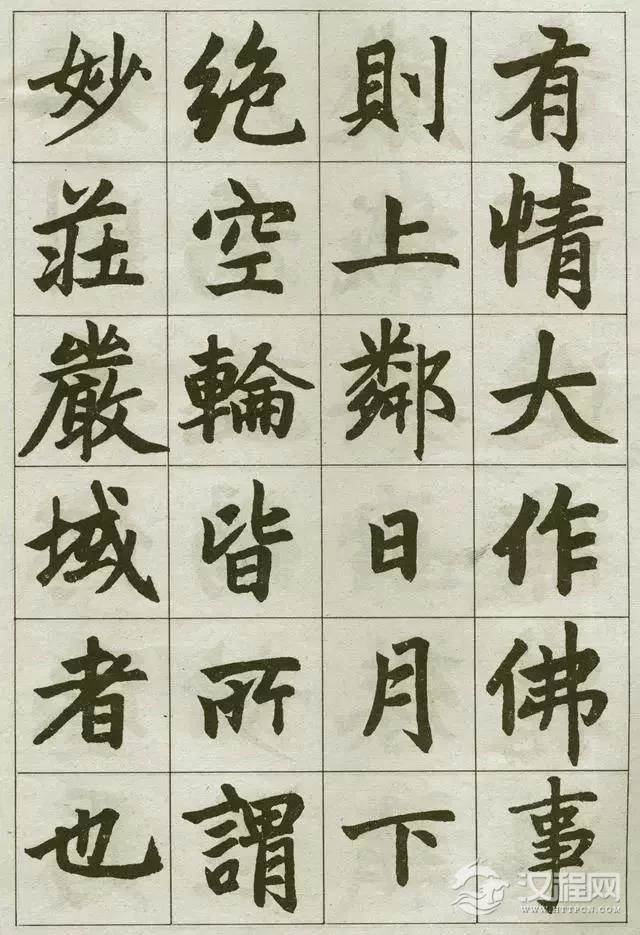 有情大作佛事
則上鄰日月下
絶空輪皆所謂
妙莊嚴域者也
汉程网
WWW.HTTPCN.COM